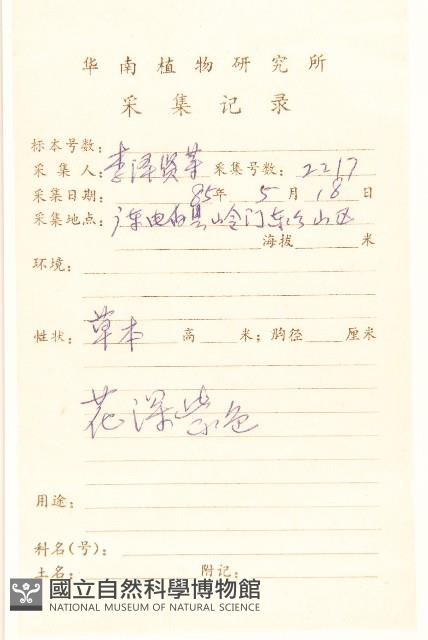 华南植物研究所
采集记录
标本号数:
采集人: 李泽贤等 采集号数: 2217
采集日期: 85年 5 月 18 日
采集地点: 广东电白县岭门东 山区
海拔 米
环境:
性状: 草本 高 米; 胸径 厘米
花深紫色
用途:
科名(号):
土名: 附记:
國立自然科學博物館
NATIONAL MUSEUM OF NATURAL SCIENCE